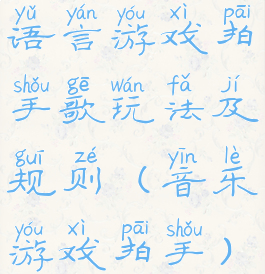 yǔ yán yóu xì pāi
语言游戏拍
shǒu gē wán fǎ jí
手歌玩法及
guī zé yīn lè
规则（音乐
yóu xì pāi shǒu
游戏拍手）